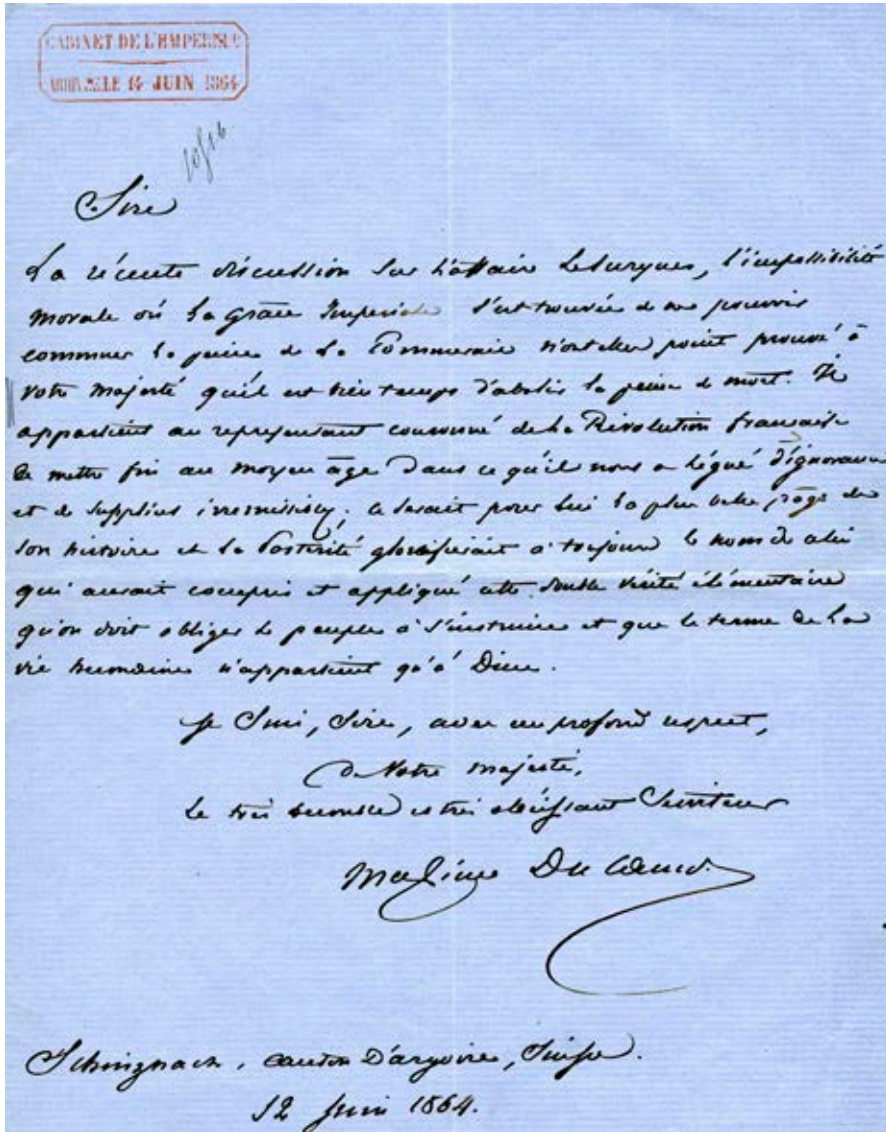 CABINET DE L'EMPEREUR
ARRIVÉE LE 14 JUIN 1864
Sire
La récente discussion sur l'affaire Lesurques, l'impossibilité
morale où la grâce Impériale s'est trouvée de ne pouvoir
commuer la peine de La Pommeraie n'ont elles point prouvé à
votre majesté qu'il est bien temps d'abolir la peine de mort. Il
appartient au représentant couronné de la Révolution française
de mettre fin au moyen âge dans ce qu'il nous a légué d'ignorance
et de supplices irrémissibles; ce serait pour lui la plus belle page de
son histoire et la Postérité glorifierait à toujours le nom de celui
qui aurait compris et appliqué cette double vérité élémentaire
qu'on doit obliger le peuple à s'instruire et que le terme de la
vie humaine n'appartient qu'à Dieu.
Je suis, Sire, avec un profond respect,
de Votre majesté,
Le très humble et très obéissant Serviteur
Maxime Du Camp.
Schinznach, canton d'argovie, Suisse.
12 Juin 1864.